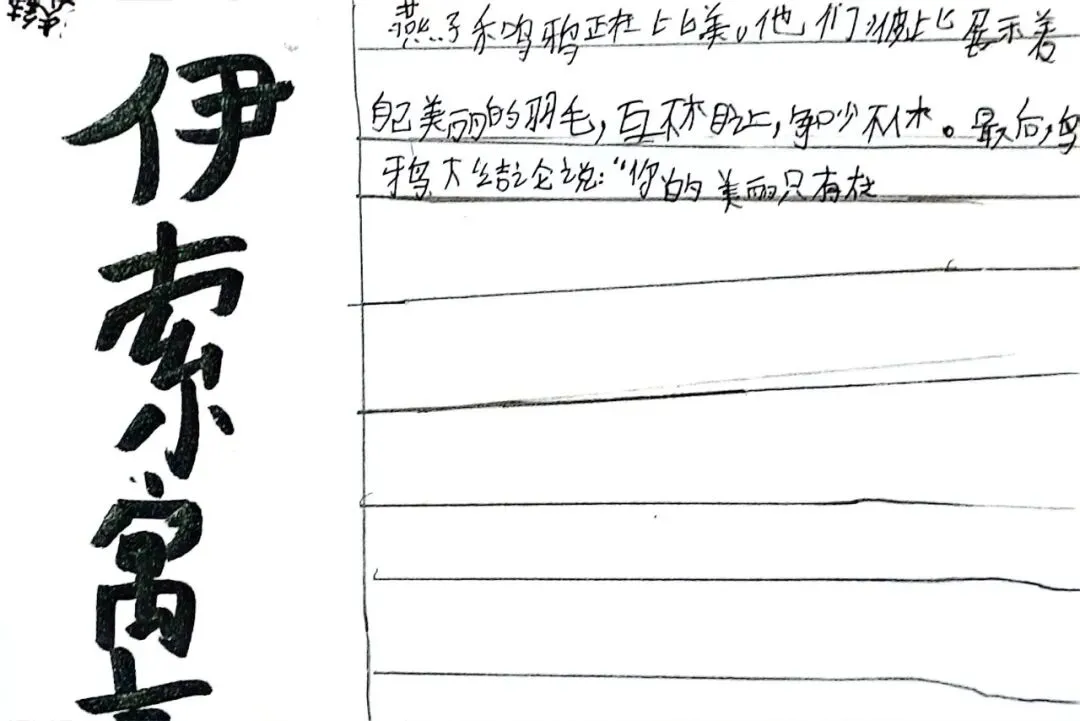 伊索寓言
燕子和乌鸦正在比美。他们彼此展示着
自己美丽的羽毛，互不相让，争吵不休。最后，乌
鸦下结论说：“你的美丽只有在